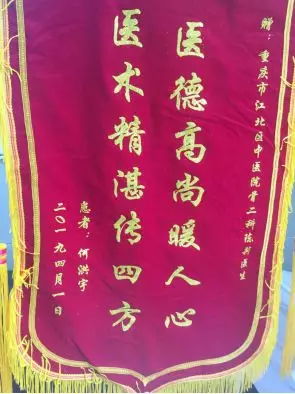 赠：重庆市江北区中医院骨二科陈彬医生
医德高尚暖人心
医术精湛传四方
患者：何洪宇
二〇一九四月一日